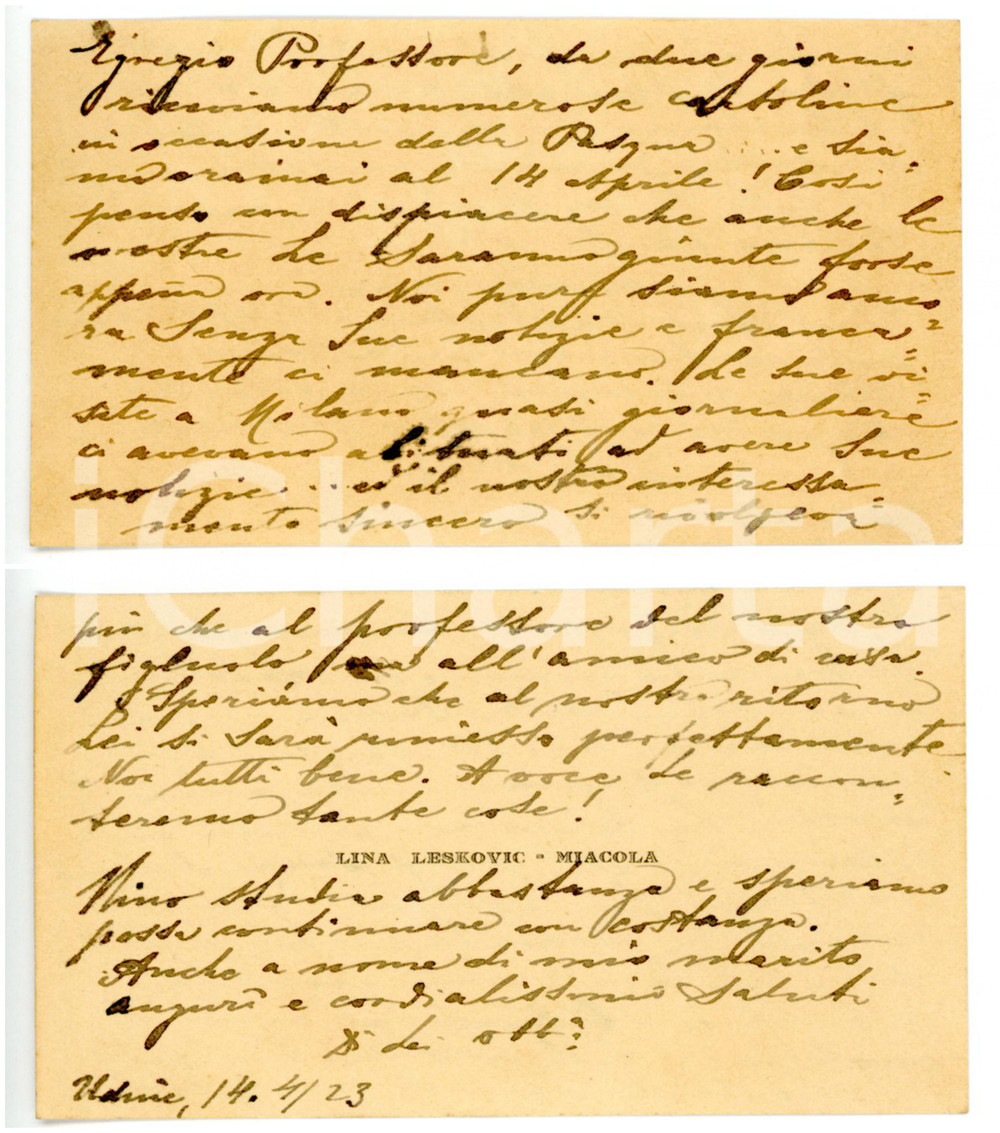 Egregio Professore, da due giorni
riceviamo numerose cartoline
in occasione della Pasqua ... e sia=
mo oramai al 14 Aprile! Così
penso con dispiacere che anche le
nostre Le saranno giunte forse
appena ora. Noi pure siamo anco=
ra senza Sue notizie e franca=
mente ci mancano. Le Sue vi=
site a Milano quasi giornaliere
ci avevano abituati ad avere Sue
notizie ... ed il nostro interessa=
mento sincero si rivolgeva
più che al professore del nostro
figluolo all'amico di casa.
Speriamo che al nostro ritorno
Lei si sarà rimesso perfettamente
Noi tutti bene. A voce Le raccon=
teremo tante cose!
LINA LESKOVIC - MIACOLA
Nino studia abbastanza e speriamo
possa continuare con costanza.
Anche a nome di mio marito
auguri e cordialissimi saluti
Di Lei obb.a
Udine, 14. 4/23
iCharta
iCharta